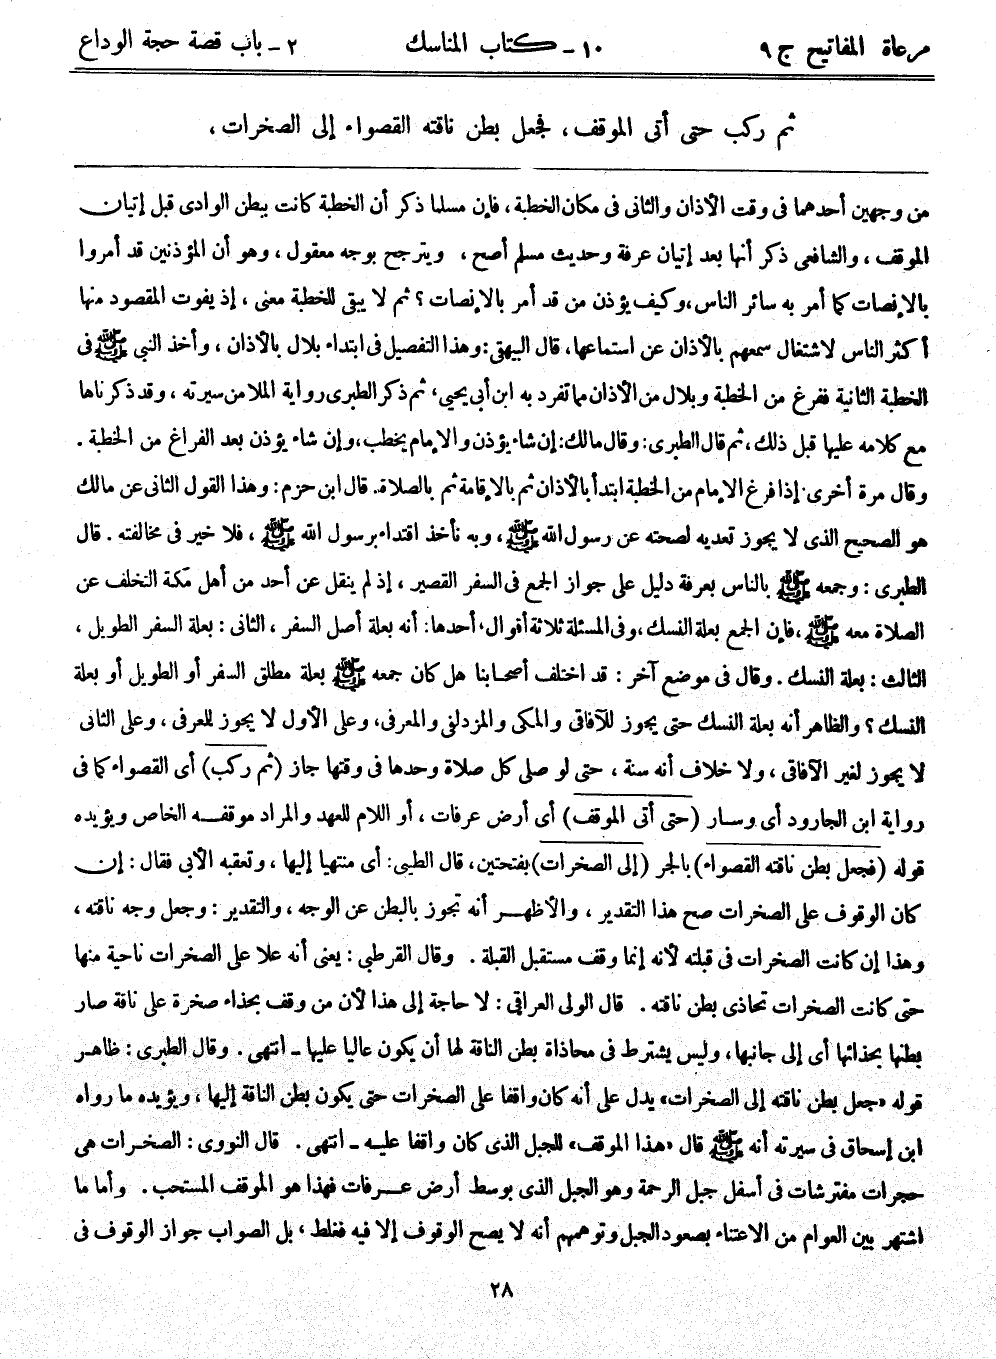 مرعاة المفاتيح ج ٩ ١٠ - كتاب المناسك ٢ - باب قصة حجة الوداع
ثم ركب حتى أتى الموقف، فجعل بطن ناقته القصواء إلى الصخرات،
من وجهين أحدهما فى وقت الأذان والثانى فى مكان الخطبة، فإن مسلما ذكر أن الخطبة كانت ببطن الوادى قبل إتيان
الموقف، والشافعى ذكر أنها بعد إتيان عرفة وحديث مسلم أصح، ويترجح بوجه معقول، وهو أن المؤذنين قد أمروا
بالإنصات كما أمر به سائر الناس، وكيف يؤذن من قد أمر بالإنصات؟ ثم لا يبقى للخطبة معنى، إذ يفوت المقصود منها
أكثر الناس لاشتغال سمعهم بالأذان عن استماعها، قال البيهقى: وهذا التفصيل فى ابتداء بلال بالأذان، وأخذ النبى ﷺ فى
الخطبة الثانية ففرغ من الخطبة وبلال من الأذان مما تفرد به ابن أبى يحيى، ثم ذكر الطبرى رواية الملا من سيرته، وقد ذكرناها
مع كلامه عليها قبل ذلك، ثم قال الطبرى: وقال مالك: إن شاء يؤذن والإمام يخطب، وإن شاء يؤذن بعد الفراغ من الخطبة.
وقال مرة أخرى: إذا فرغ الإمام من الخطبة ابتدأ بالأذان ثم بالإقامة ثم بالصلاة. قال ابن حزم: وهذا القول الثانى عن مالك
هو الصحيح الذى لا يجوز تعديه لصحته عن رسول الله ﷺ، وبه نأخذ اقتداء برسول الله ﷺ، فلا خير فى مخالفته. قال
الطبرى: وجمعه ﷺ بالناس بعرفة دليل على جواز الجمع فى السفر القصير، إذ لم ينقل عن أحد من أهل مكة التخلف عن
الصلاة معه ﷺ، فإن الجمع بعلة النسك، وفى المسئلة ثلاثة أقوال، أحدها: أنه بعلة أصل السفر، الثانى: بعلة السفر الطويل،
الثالث: بعلة النسك. وقال فى موضع آخر: قد اختلف أصحابنا هل كان جمعه ﷺ بعلة مطلق السفر أو الطويل أو بعلة
النسك؟ والظاهر أنه بعلة النسك حتى يجوز للآفاقى والمكى والمزدلفى والمعرفى، وعلى الأول لا يجوز للعرفى، وعلى الثانى
لا يجوز لغير الآفاقى، ولا خلاف أنه سنة، حتى لو صلى كل صلاة وحدها فى وقتها جاز (ثم ركب) أى القصواء كما فى
رواية ابن الجارود أى وسار (حتى أتى الموقف) أى أرض عرفات، أو اللام للعهد والمراد موقفه الخاص ويؤيده
قوله (فجعل بطن ناقته القصواء) بالجر (إلى الصخرات) بفتحتين، قال الطيبى: أى منتهيا إليها، وتعقبه الأبى فقال: إن
كان الوقوف على الصخرات صح هذا التقدير، والأظهر أنه تجوز بالبطن عن الوجه، والتقدير: وجعل وجه ناقته،
وهذا إن كانت الصخرات فى قبلته لأنه إنما وقف مستقبل القبلة. وقال القرطبى: يعنى أنه علا على الصخرات ناحية منها
حتى كانت الصخرات تحاذى بطن ناقته. قال الولى العراقى: لا حاجة إلى هذا لأن من وقف بحذاء صخرة على ناقة صار
بطنها بحذائها أى إلى جانبها، وليس يشترط فى محاذاة بطن الناقة لها أن يكون عاليا عليها - انتهى. وقال الطبرى: ظاهر
قوله «جعل بطن ناقته إلى الصخرات» يدل على أنه كان واقفا على الصخرات حتى يكون بطن الناقة إليها، ويؤيده ما رواه
ابن إسحاق فى سيرته أنه ﷺ قال «هذا الموقف» للجبل الذى كان واقفا عليه - انتهى. قال النووى: الصخرات هى
حجرات مفترشات فى أسفل جبل الرحمة وهو الجبل الذى بوسط أرض عرفات فهذا هو الموقف المستحب. وأما ما
اشتهر بين العوام من الاعتناء بصعود الجبل وتوهمهم أنه لا يصح الوقوف إلا فيه فغلط، بل الصواب جواز الوقوف فى
٢٨